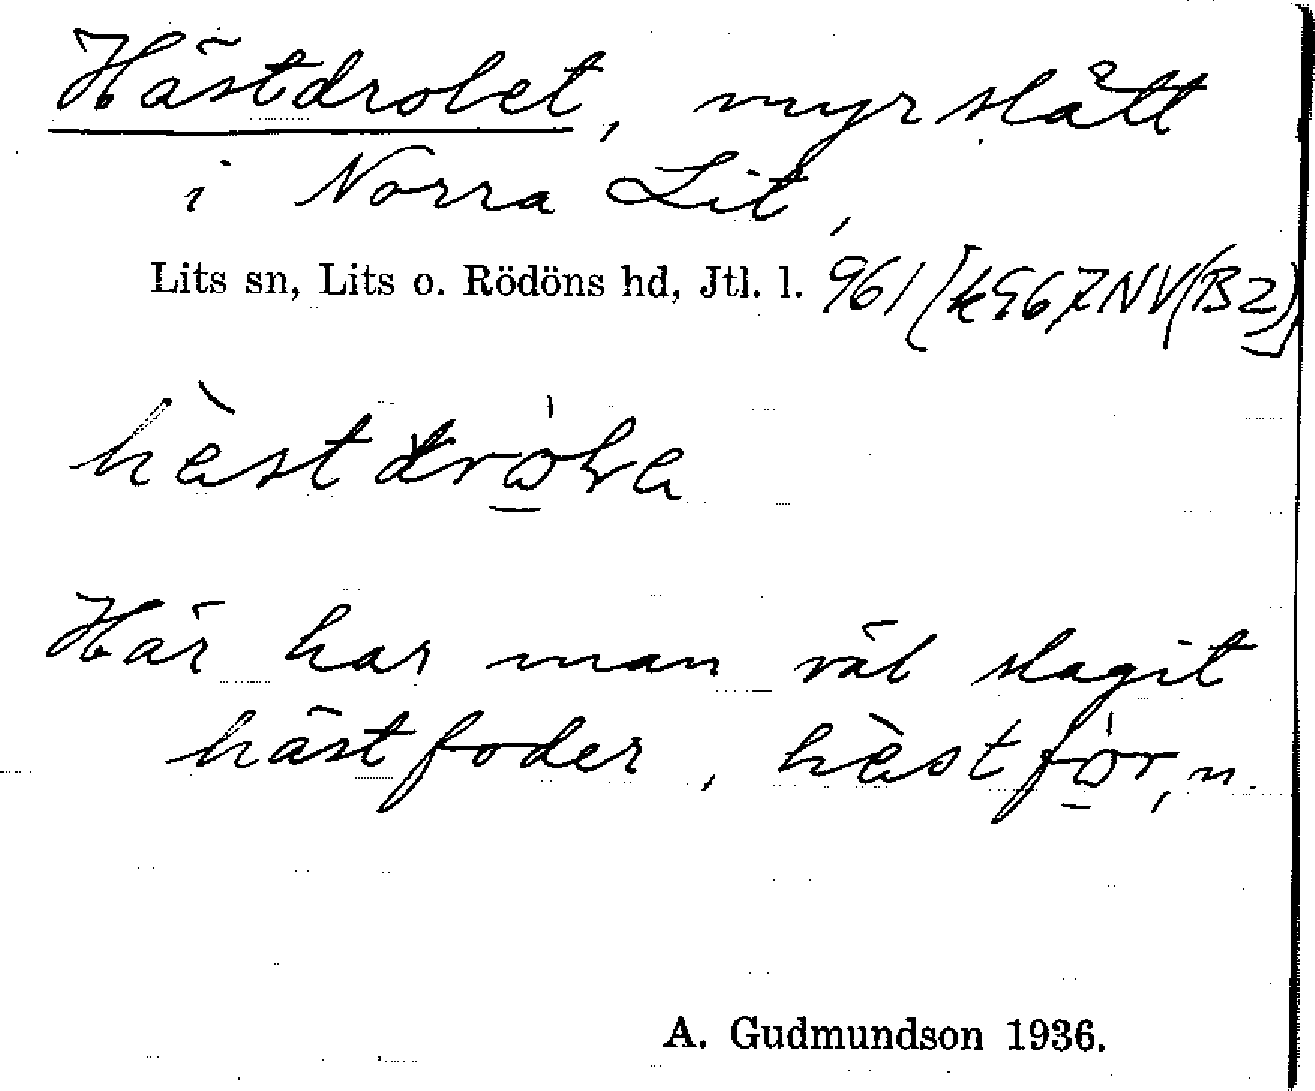 Hästdrolet, myrslått
i Norra Lit,
Lits sn, Lits o. Rödöns hd, Jtl. l. 961
Här har man väl slagit
hästfoder, hèstfo̠r, n.
A. Gudmundson 1936.